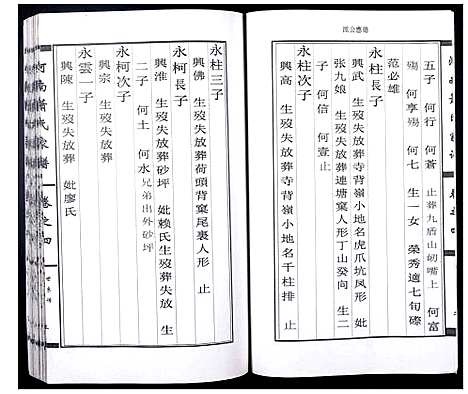 德應公派
五子 何行 何蒼 止葬九盾山㘭嘴上 何富
殤 何享殤 何七 生一女 榮秀適七旬磜
范必雄
永柱長子
興武 生歿失放葬寺背嶺小地名虎爪坑凤形 妣
張九娘 生歿失放葬連塘窠人形丁山癸向 生二
子 何信 何壹止
永柱次子
興高 生歿失放葬寺背嶺小地名千柱排 止
永柱三子
興佛 生歿失放葬荷頭背窠尾裏人形 止
永柯長子
興淮 生歿失放葬砂坪 妣賴氏生歿葬失放 生
二子 何土 何水兄弟出外砂坪
永柯次子
興宗 生歿失放葬
永雲一子
興陳 生歿失放葬 妣廖氏
蕭氏家譜
卷之四